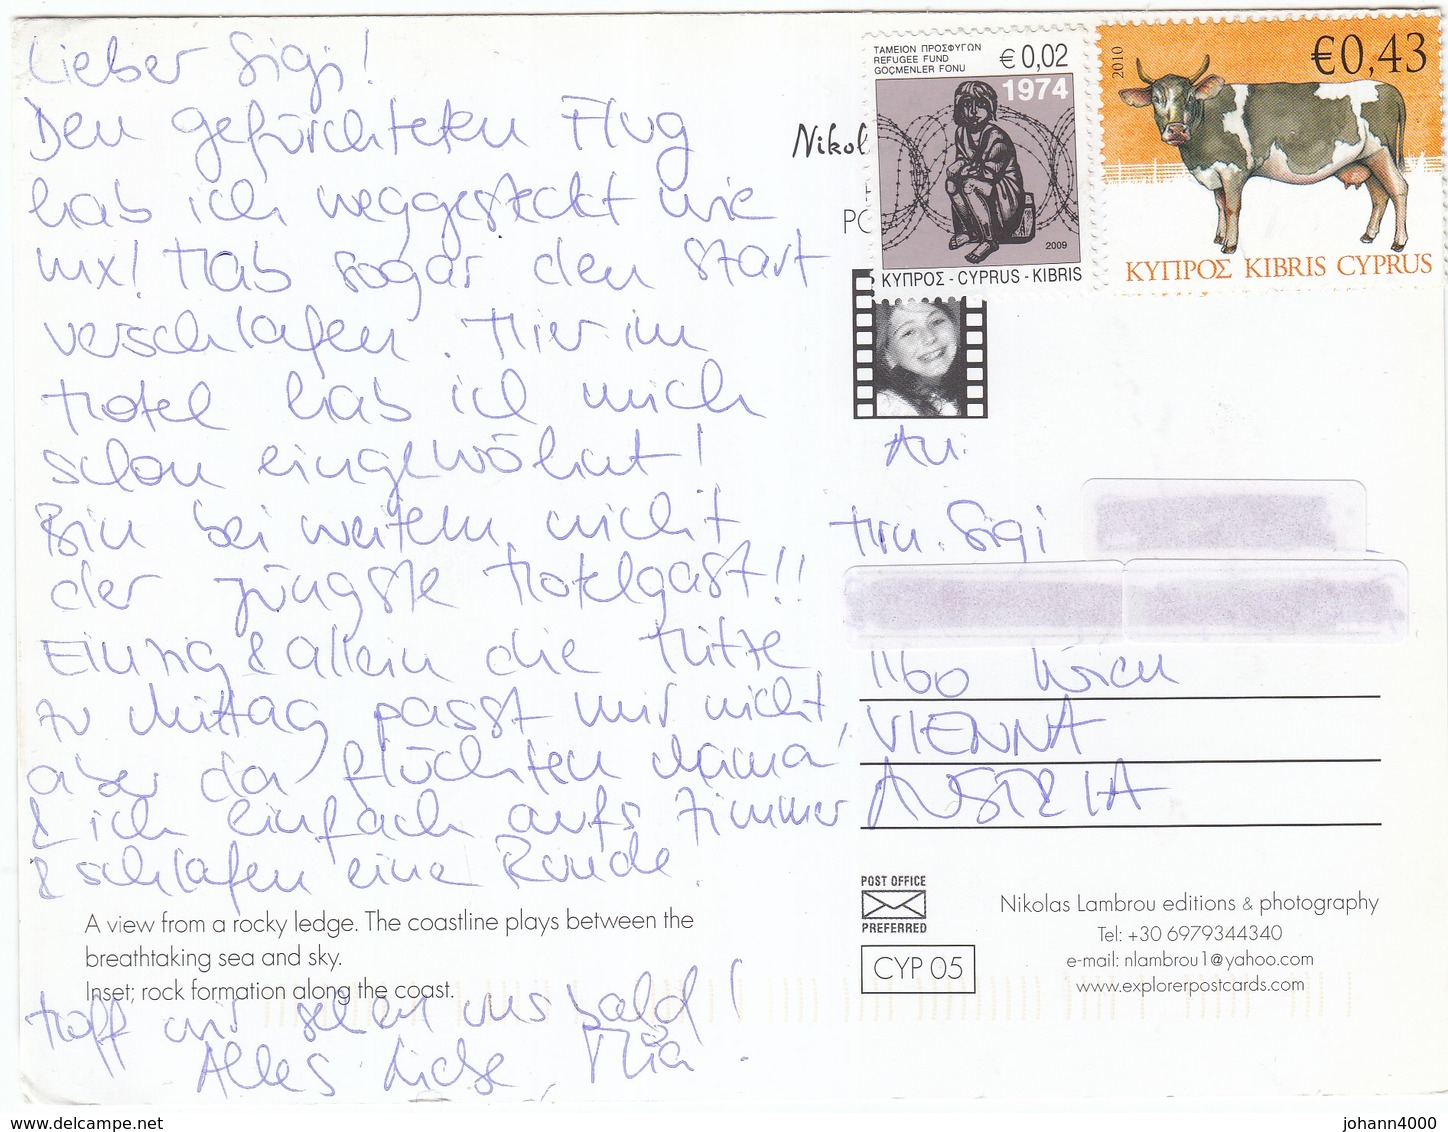 Lieber Sigi!
Den gefürchteten Flug
hab ich weggesteckt wie
nix! Hab sogar den Start
verschlafen. Hier im
Hotel hab ich mich
schon eingewöhnt!
Bin bei weitem nicht
der jüngste Hotelgast!!
Einzig & allein die Hitze
zu Mittag passt mir nicht,
aber da flüchten Mama
& ich einfach aufs Zimmer
& schlafen eine Runde.
A view from a rocky ledge. The coastline plays between the
breathtaking sea and sky.
Inset; rock formation along the coast.
Hoff wir sehen uns bald!
Alles Liebe, Mia
ΤΑΜΕΙΟΝ ΠΡΟΣΦΥΓΩΝ
REFUGEE FUND
GÖÇMENLER FONU
€0,02
1974
2009
ΚΥΠΡΟΣ - CYPRUS - KIBRIS
2010
€0,43
ΚΥΠΡΟΣ KIBRIS CYPRUS
Nikol
PO
An:
Hrn. Sigi
1160 Wien
VIENNA
AUSTRIA
POST OFFICE
PREFERRED
CYP 05
Nikolas Lambrou editions & photography
Tel: +30 6979344340
e-mail: nlambrou1@yahoo.com
www.explorerpostcards.com
www.delcampe.net
johann4000